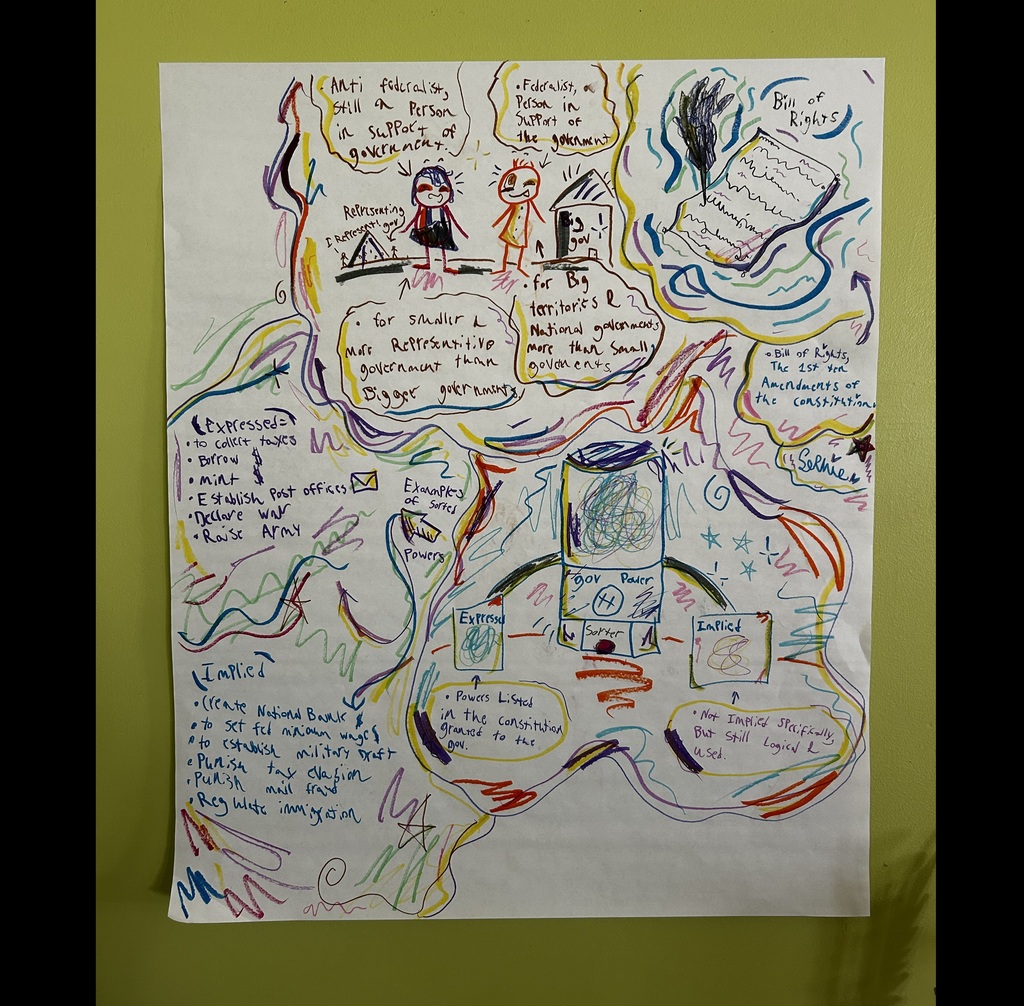 • Anti federalist,
still a Person
in support of
government.
• Federalist, a
Person in
Support of
the government
Bill of
Rights
Representing
I Represent! gov
Big
gov
• for smaller &
more Representitive
government than
Bigger governments.
• for Big
territories &
National governments
more than small
goverments.
• Bill of Rights,
The 1st ten
Amendments of
the constitution.
(Expressed=)
• to collect taxes
• Borrow $
• mint $
• Establish Post offices
• Declare war
• Raise Army
Examples
of sorted
Powers
gov Power
Sorter
Expressed
Implied
• Powers Listed
in the constitution
granted to the
gov.
• Not Implied specifically,
But still logical &
used.
(Implied)
• Create National Bank $
• to set fed minimum wage $
• to establish military draft
• Punish tax evasion
• Punish mail fraud
• Regulate immigration